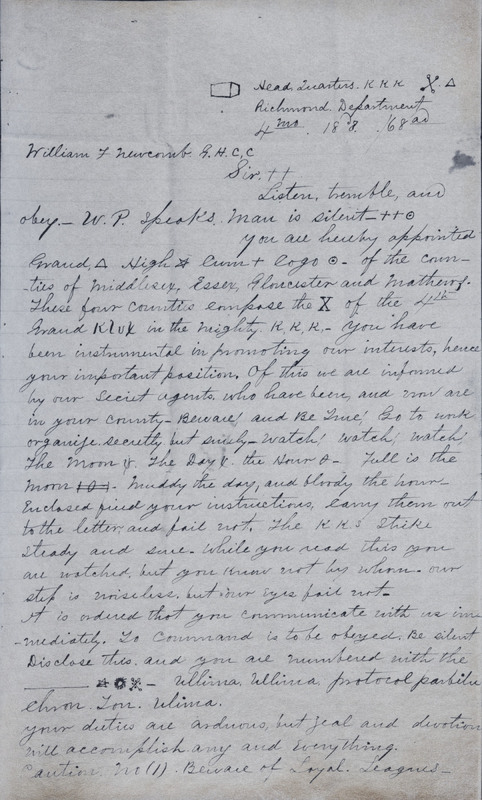 Head Quarters. K K K
Richmond Department
4 mo. 18 . '68 ad
William F Newcomb G. H. C, C
Sir. ††
Listen, tremble, and
obey. — W. P. Speaks. Man is silent — ++ ⊙
You are hereby appointed
Grand, △ High ✡ Cum + Logo ⊙ - of the coun-
ties of Middlesex, Essex, Gloucester and Mathews.
These four counties compose the X of the 4th
Grand in the mighty K. K. K. — You have
been instrumental in promoting our interests, hence
your important position. Of this we are informed
by our Secret agents, who have been, and now are
in your county — Beware! and Be True! Go to work
organize, secretly, but surely — watch! watch! watch!
The Moon . The Day . the Hour — Full is the
Moon — Muddy the day, and bloody the hour —
Enclosed find your instructions, carry them out
to the letter, and fail not. The K K S Strike
Steady and sure. While you read this you
are watched, but you know not by whom. our
step is noiseless, but our eyes fail not —
It is ordered that you communicate with us im-
-mediately. To Command is to be obeyed. Be silent
Disclose this. and you are numbered with the
— Ullima, Ullima. protocol
Chron. Ton. Ulima.
your duties are arduous, but zeal and devotion
will accomplish any and everything.
Caution. M (1). Beware of Loyal. Leagues —